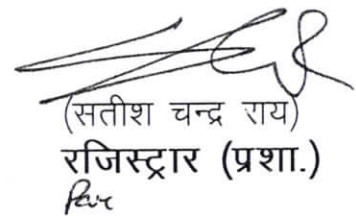 (सतीश चन्द्र राय)
रजिस्ट्रार (प्रशा.)